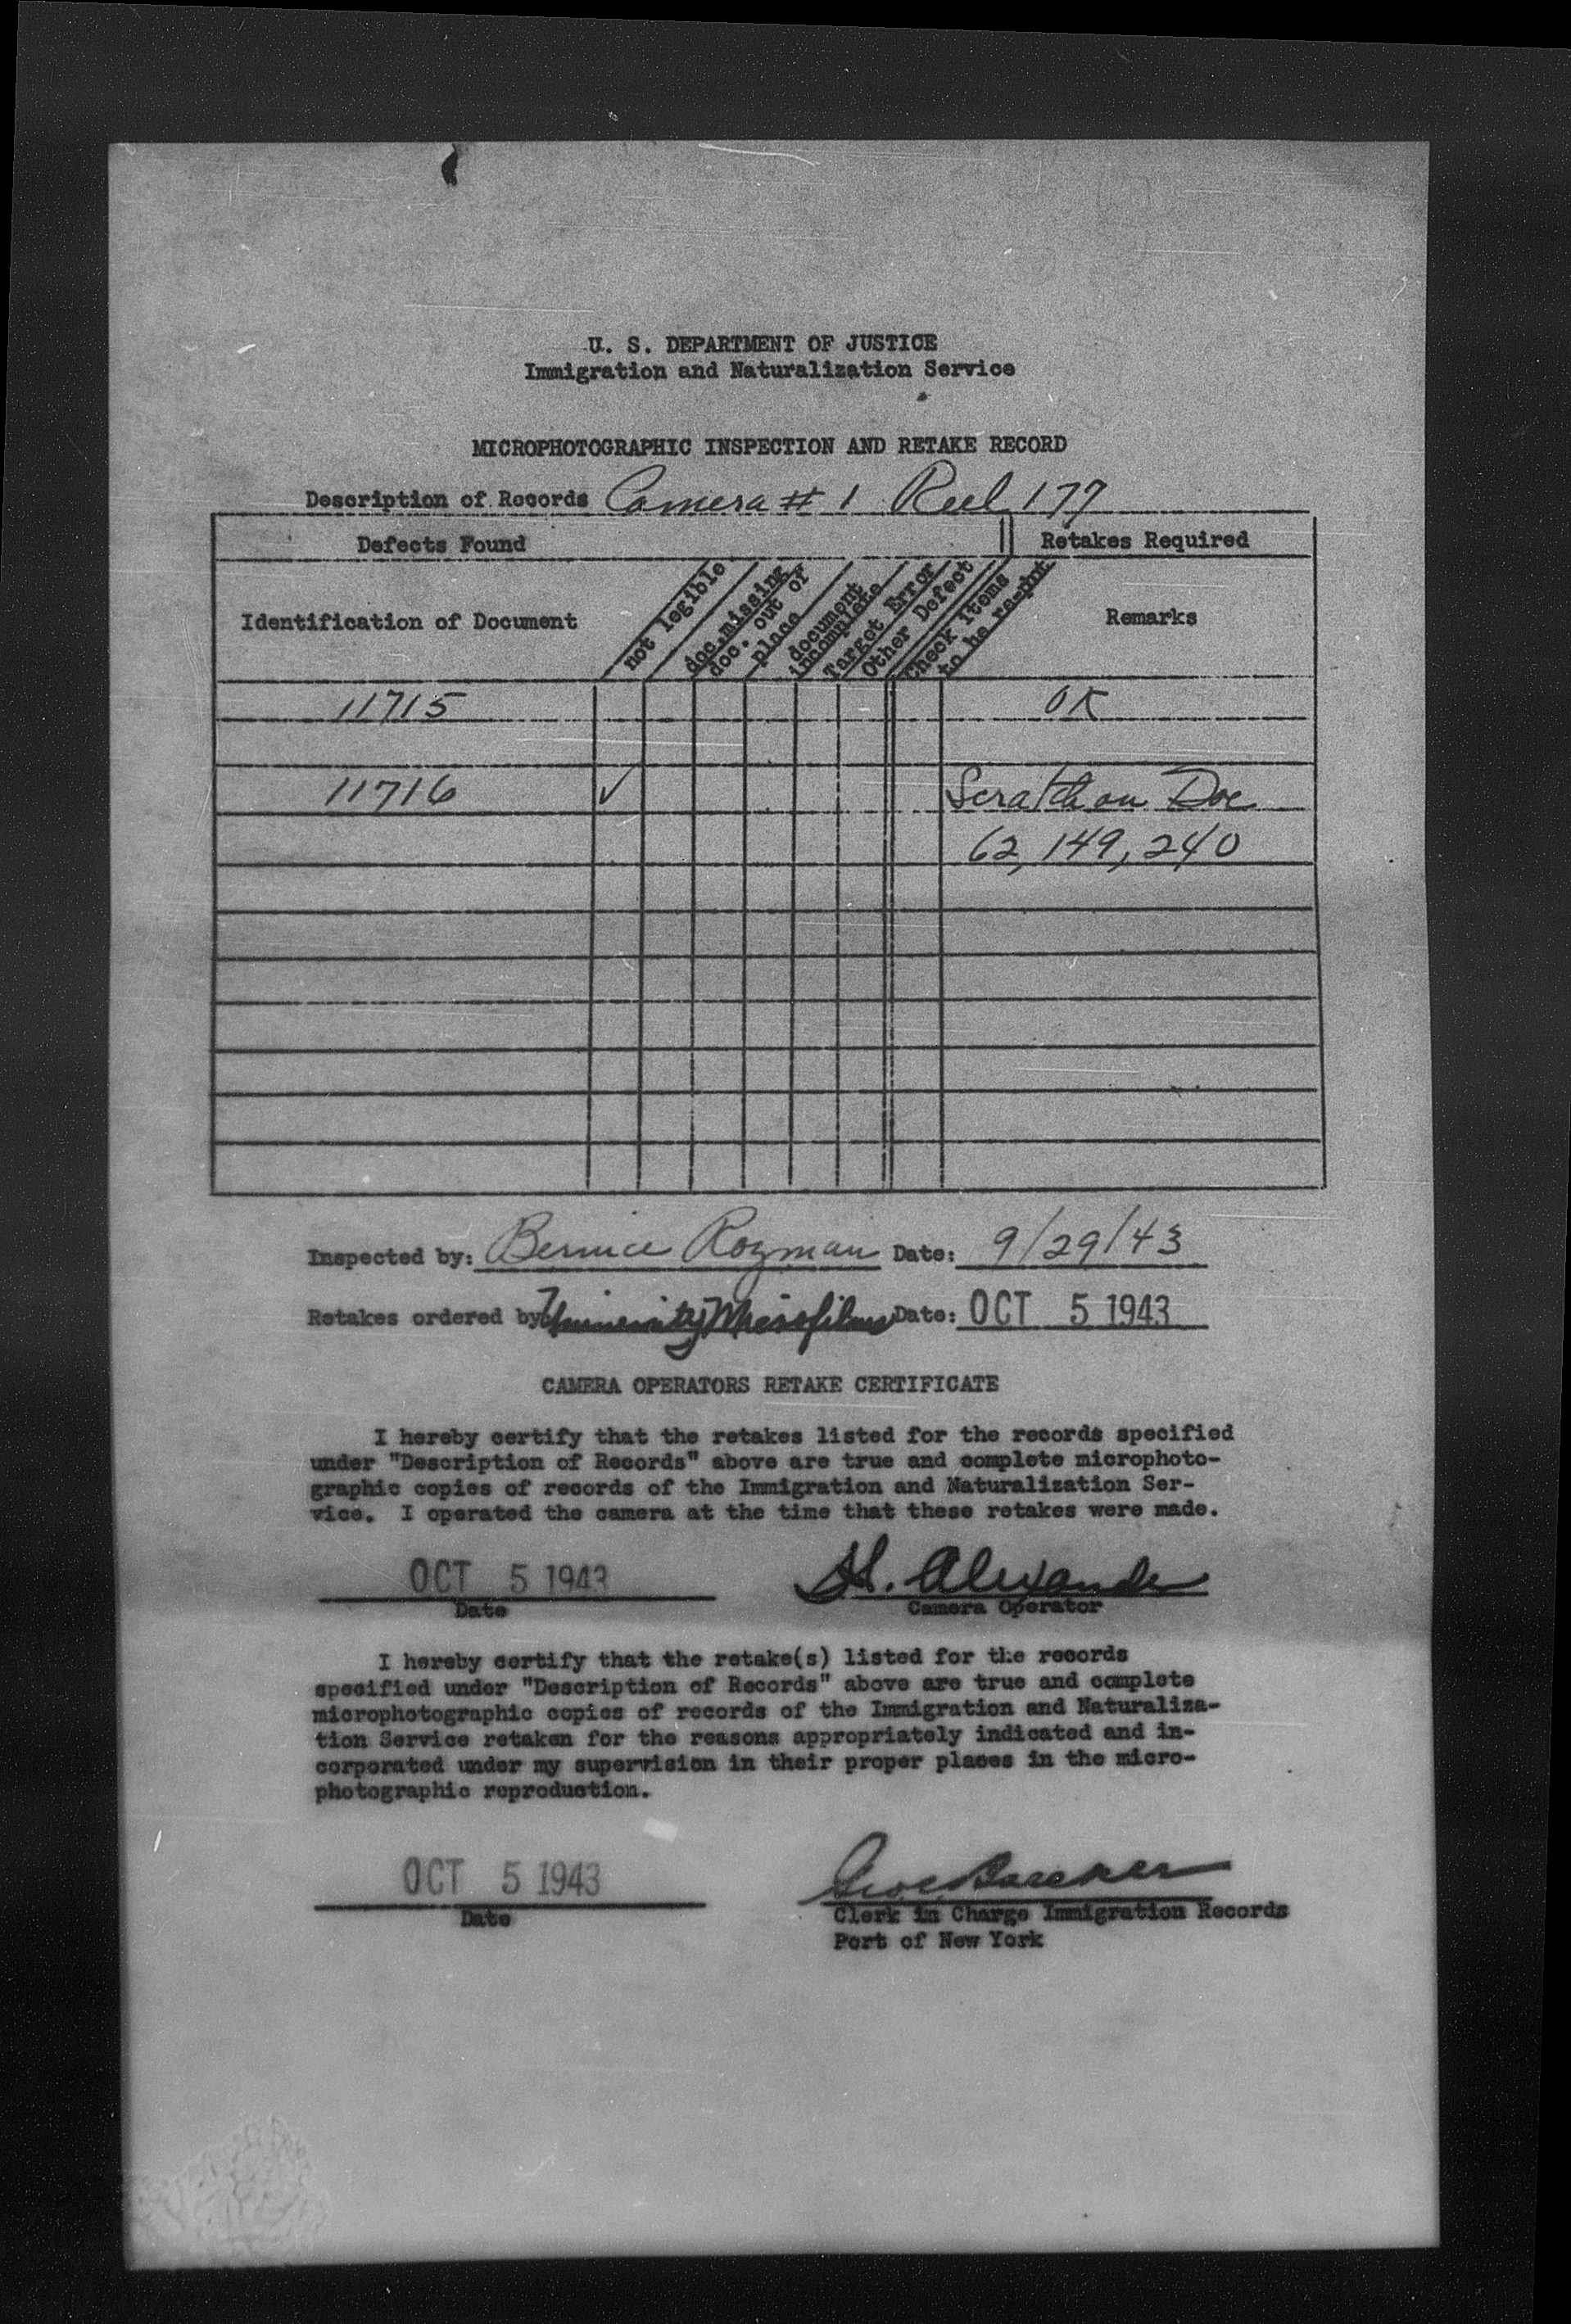 U. S. DEPARTMENT OF JUSTICE
Immigration and Naturalization Service
MICROPHOTOGRAPHIC INSPECTION AND RETAKE RECORD
Description of Records Camera # 1 Reel 177
Defects Found Retakes Required
Identification of Document not legible doc. missing doc. out of place document incomplete Target Error Other Defect Check items to be re-pht Remarks
11715 OK
11716 ✓ Scratch on Doc
62, 149, 240
Inspected by: Bernice Rozman Date: 9/29/43
Retakes ordered by University Microfilms Date: OCT 5 1943
CAMERA OPERATORS RETAKE CERTIFICATE
I hereby certify that the retakes listed for the records specified
under "Description of Records" above are true and complete microphoto-
graphic copies of records of the Immigration and Naturalization Ser-
vice. I operated the camera at the time that these retakes were made.
OCT 5 1943 H. Alexander
Date Camera Operator
I hereby certify that the retake(s) listed for the records
specified under "Description of Records" above are true and complete
microphotographic copies of records of the Immigration and Naturaliza-
tion Service retaken for the reasons appropriately indicated and in-
corporated under my supervision in their proper places in the micro-
photographic reproduction.
OCT 5 1943
Date Clerk in Charge Immigration Records
Port of New York